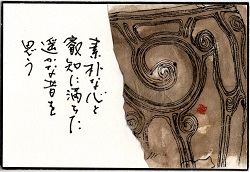 素朴な心と
叡知に満ちた
遥かな昔を
思う